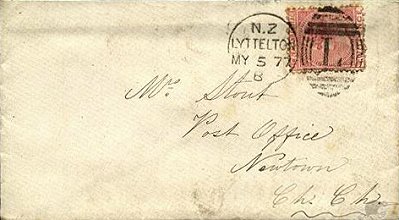 N.Z
LYTTELTON
MY 5 77
B
L
Mr. Stout
Post Office
Newtown
Ch: Ch.